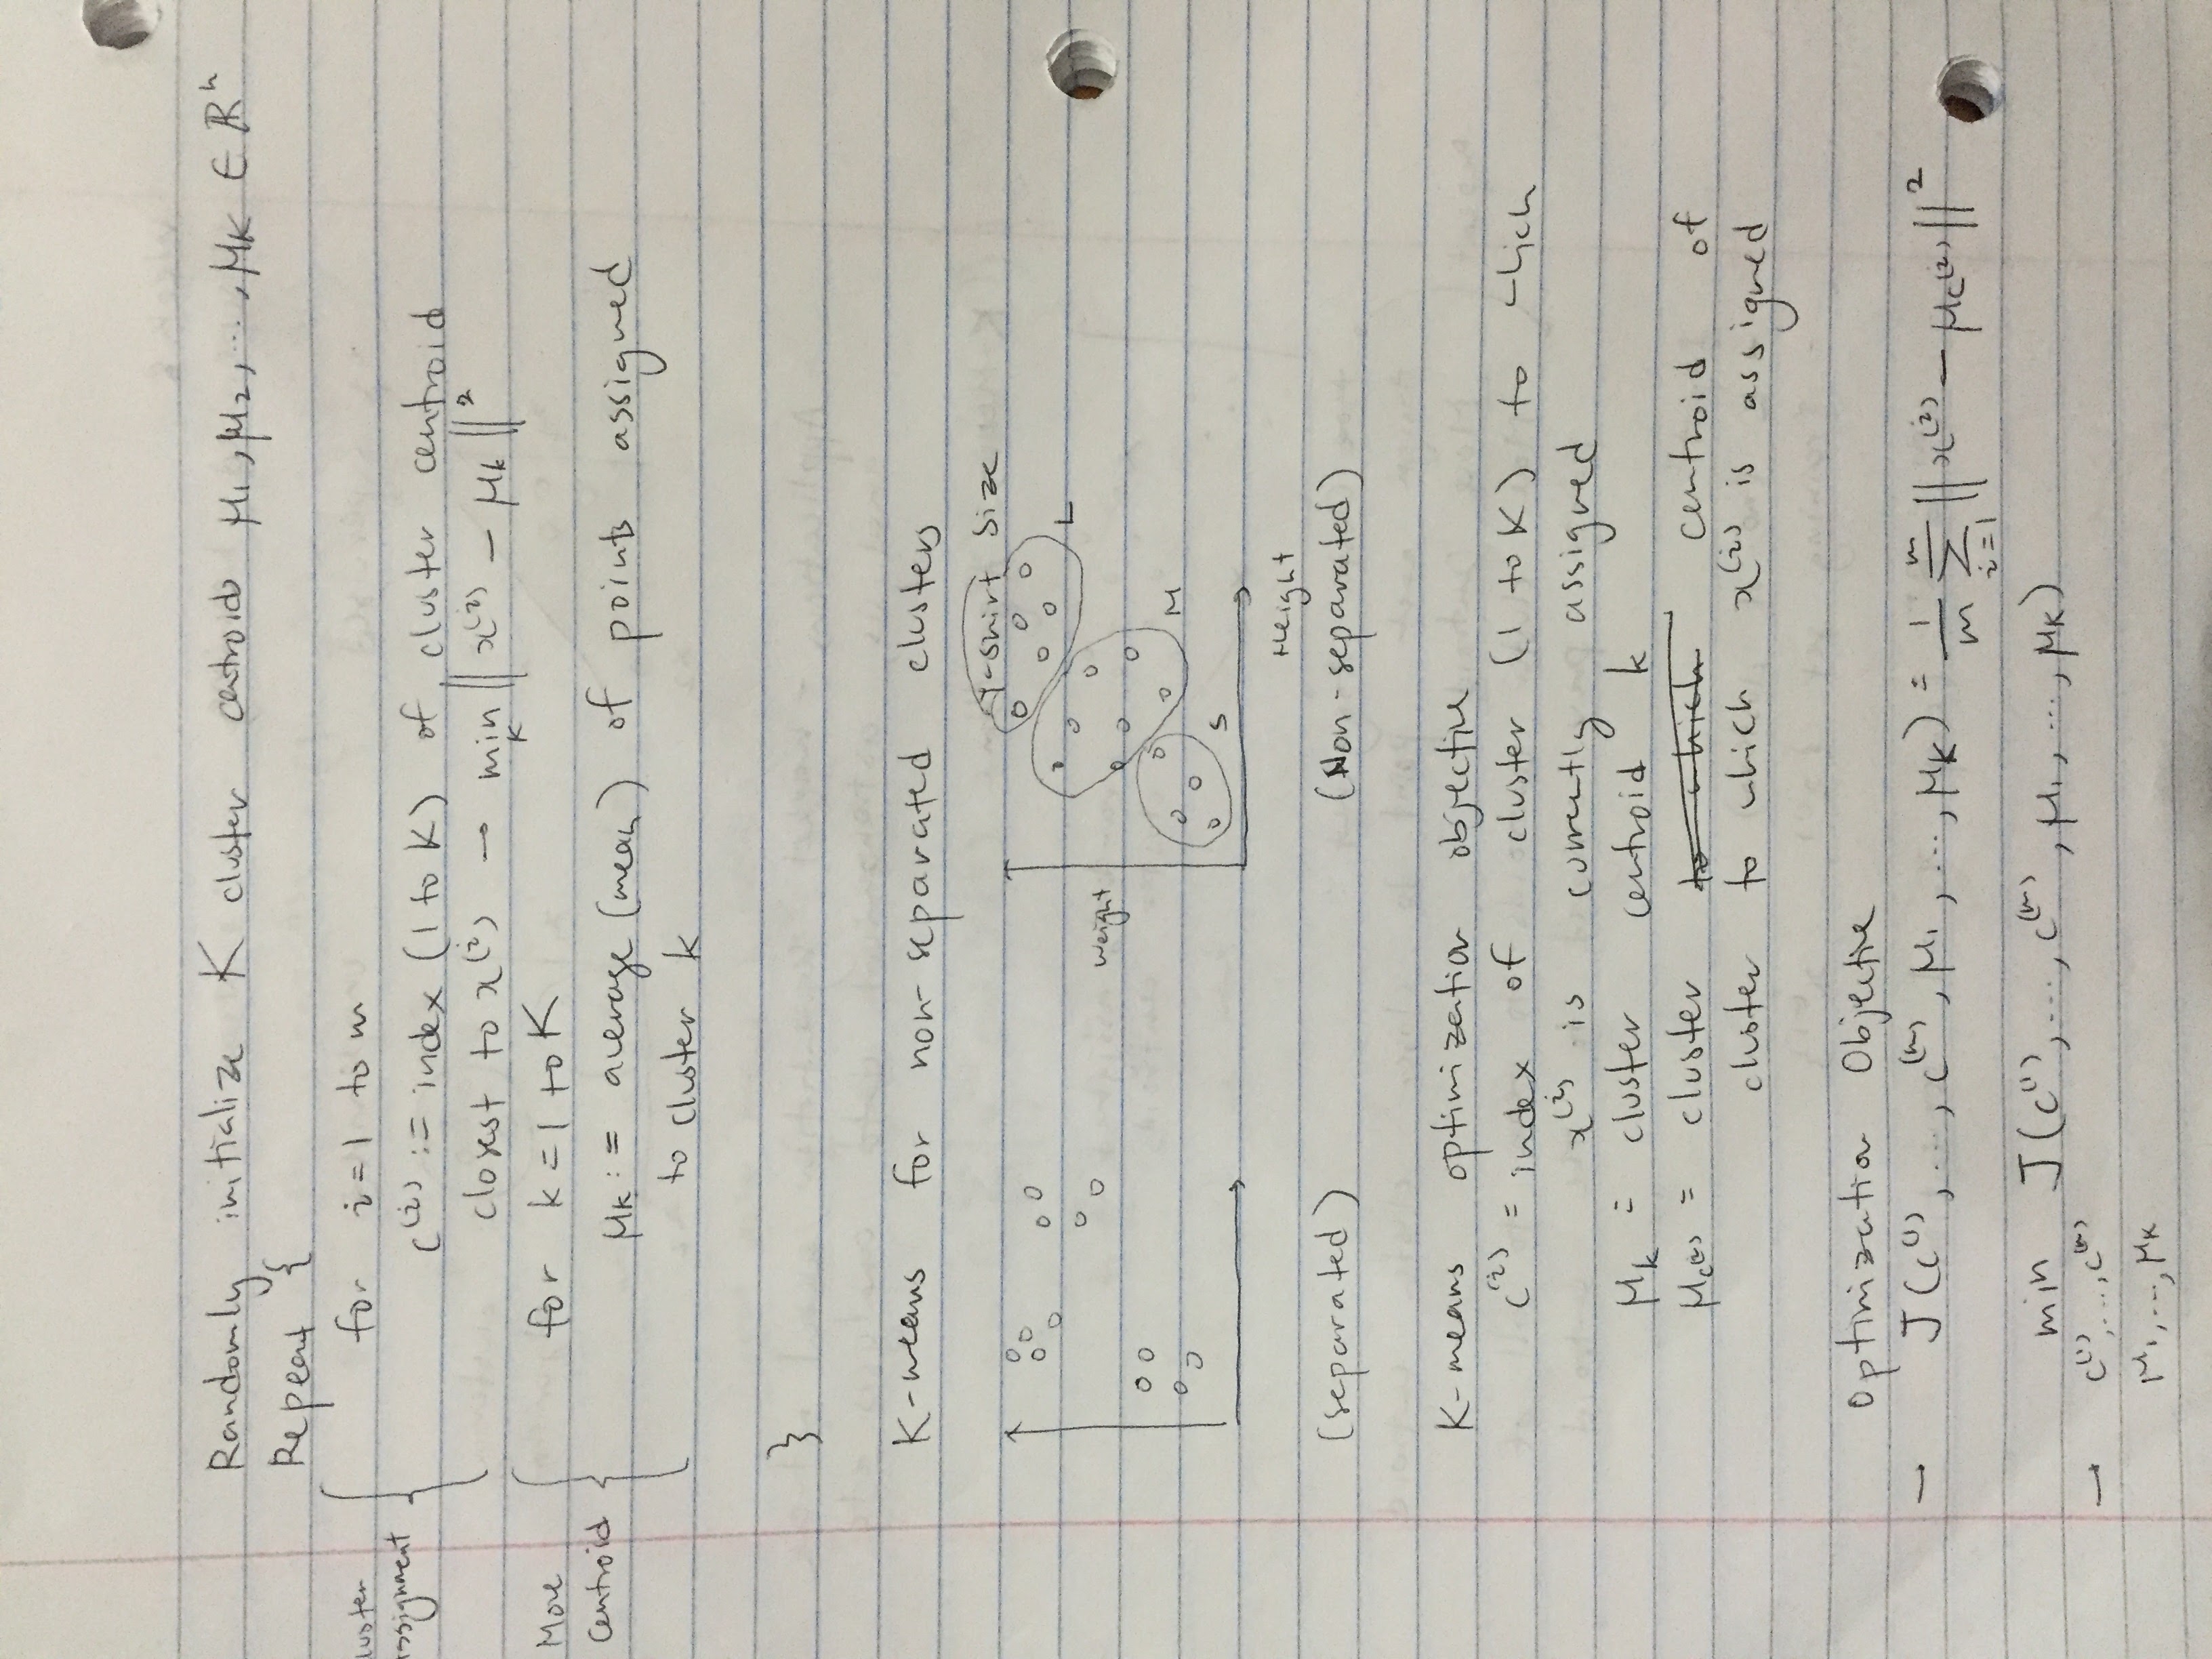 Randomly initialize K cluster centroids μ₁, μ₂, ..., μ_K ∈ ℝⁿ
Repeat {
luster
assignment
for i = 1 to m
c⁽ⁱ⁾ := index (1 to K) of cluster centroid
closest to x⁽ⁱ⁾ → min_K ‖x⁽ⁱ⁾ − μ_k‖²
Move
centroid
for k = 1 to K
μ_K := average (mean) of points assigned
to cluster k
}
K-means for non-separated clusters
T-shirt Size
L
Weight
M
S
Height
(separated)
(Non-separated)
K-means optimization objective
c⁽ⁱ⁾ = index of cluster (1 to K) to which
x⁽ⁱ⁾ is currently assigned
μ_k = cluster centroid k
μ_c⁽ⁱ⁾ = cluster to which centroid of
cluster to which x⁽ⁱ⁾ is assigned
Optimization Objective
→ J(c⁽¹⁾, ..., c⁽ᵐ⁾, μ₁, ..., μ_K) = 1/m Σ_{i=1}^{m} ‖x⁽ⁱ⁾ − μ_c⁽ⁱ⁾‖²
min J(c⁽¹⁾, ..., c⁽ᵐ⁾, μ₁, ..., μ_K)
→ c⁽¹⁾, ..., c⁽ᵐ⁾
μ₁, ..., μ_K